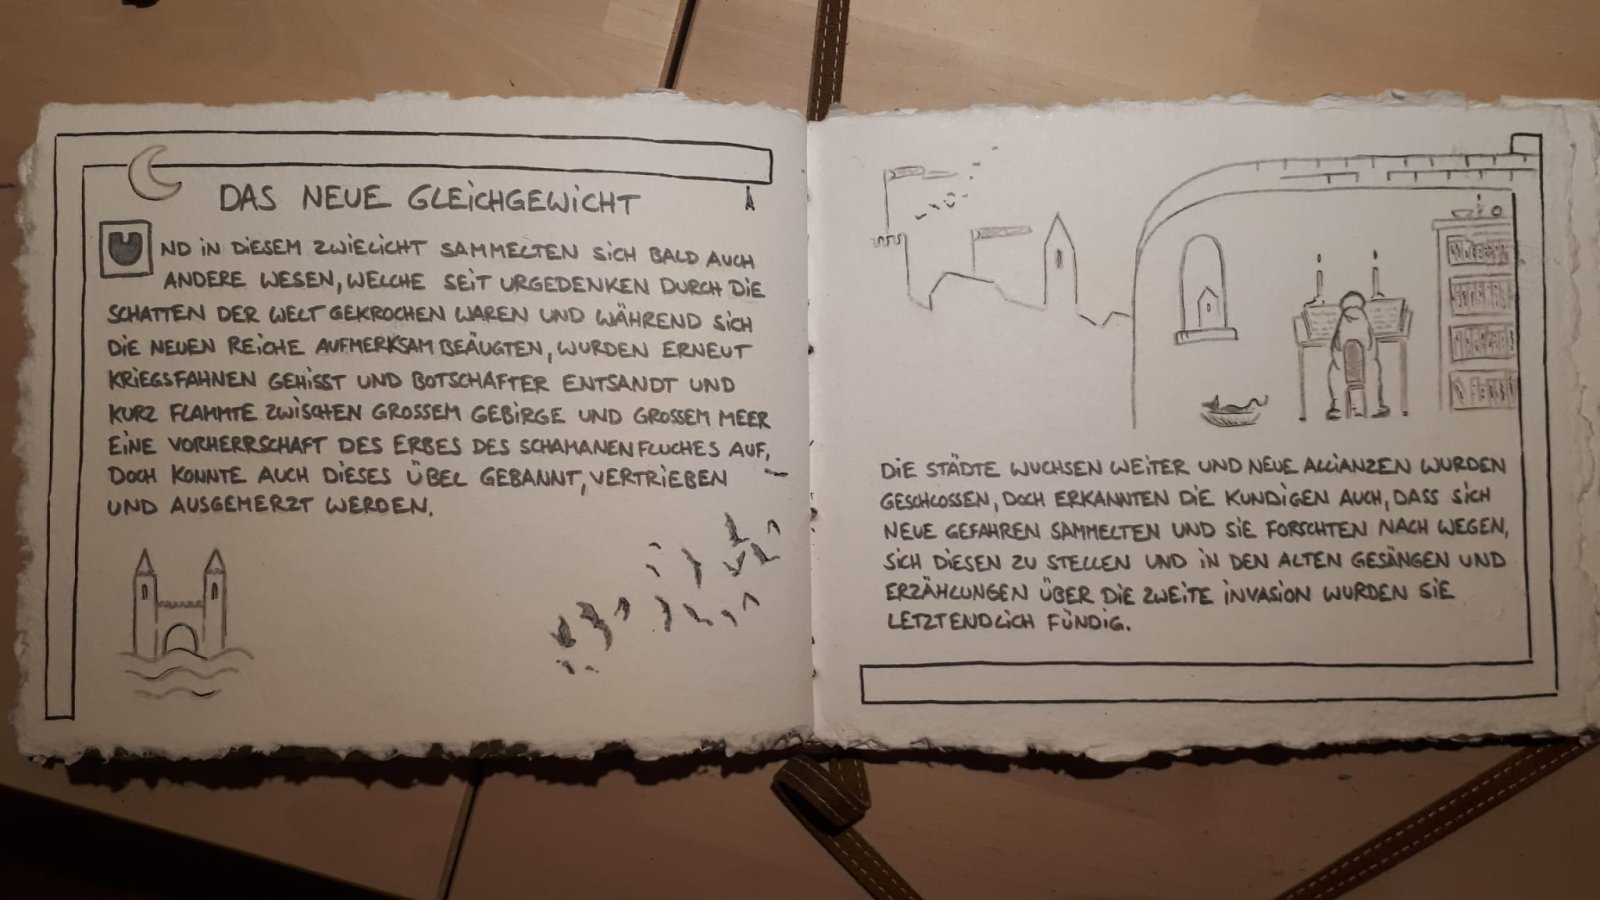 DAS NEUE GLEiCHGEWiCHT
UND iN DiESEM ZWiELiCHT SAMMELTEN SiCH BALD AUCH
ANDERE WESEN, WELCHE SEiT URGEDENKEN DURCH DiE
SCHATTEN DER WELT GEKROCHEN WAREN UND WÄHREND SiCH
DiE NEUEN REiCHE AUFMERKSAM BEÄUGTEN, WURDEN ERNEUT
KRiEGSFAHNEN GEHiSST UND BOTSCHAFTER ENTSANDT UND
KURZ FLAMMTE ZWiSCHEN GROSSEM GEBiRGE UND GROSSEM MEER
EiNE VORHERRSCHAFT DES ERBES DES SCHAMANENFLUCHES AUF,
DOCH KONNTE AUCH DiESES ÜBEL GEBANNT, VERTRiEBEN
UND AUSGEMERZT WERDEN.
DiE STÄDTE WUCHSEN WEiTER UND NEUE ALLiANZEN WURDEN
GESCHLOSSEN, DOCH ERKANNTEN DiE KUNDiGEN AUCH, DASS SiCH
NEUE GEFAHREN SAMMELTEN UND SiE FORSCHTEN NACH WEGEN,
SiCH DiESEN ZU STELLEN UND iN DEN ALTEN GESÄNGEN UND
ERZÄHLUNGEN ÜBER DiE ZWEiTE iNVASiON WURDEN SiE
LETZTENDLiCH FÜNDiG.